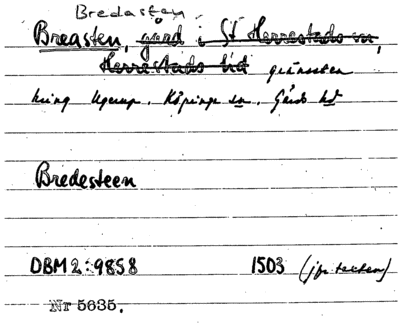 Bredasten.
Breasten, gård i St Herrestads sn,
Herrestads hd gränssten
kring Ugerup. Köpinge sn. Gärds hd
Bredesteen
DBM 2:9858 1503 (jfr texten)
Nr 5635.